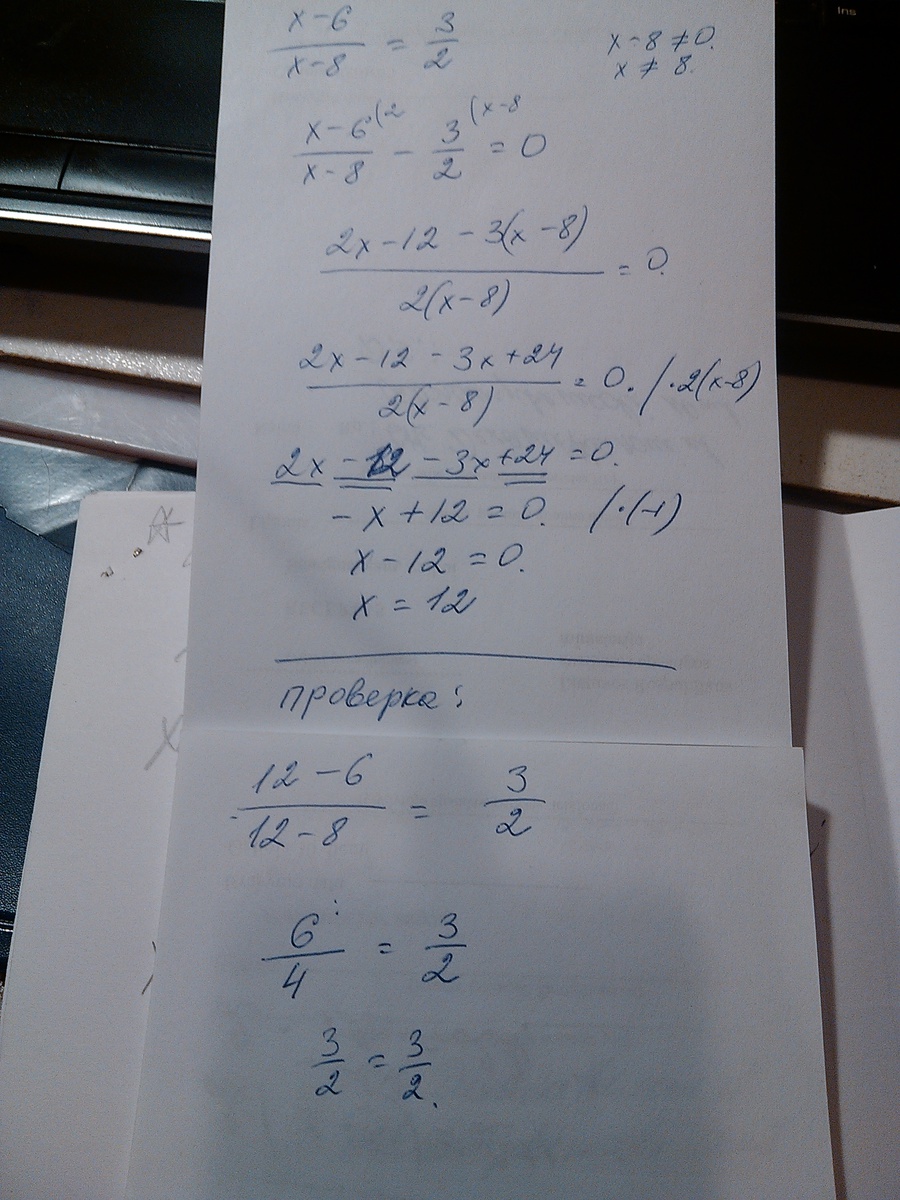 Ins
x-6/x-8 = 3/2 x-8≠0.
x≠8.
x-6(2/x-8 - 3(x-8/2 = 0
2x-12-3(x-8)/2(x-8) = 0.
2x-12-3x+24/2(x-8) = 0. /·2(x-8)
2x-12-3x+24=0.
-x+12=0. /·(-1)
x-12=0.
x=12
проверка:
12-6/12-8 = 3/2
6/4 = 3/2
3/2 = 3/2.